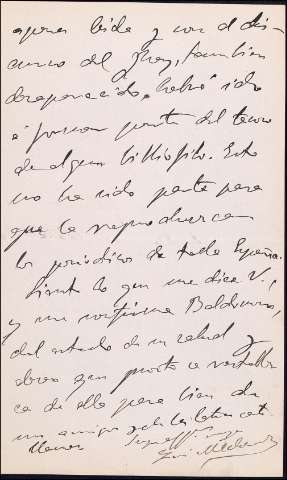 apenas leida y con el dis-
curso del Rey, tambien
desaparecido, habrá ido
á formar parte del tesoro
de algun bibliófilo. Esto
no ha sido parte para
que la reproduzcan
los periodicos de toda España.
Siento lo que me dice V.,
y me confirma Baldomero,
del estado de su salud y
deseo que pronto se restablez-
ca de ella para bien de
sus amigos y de las letras cat